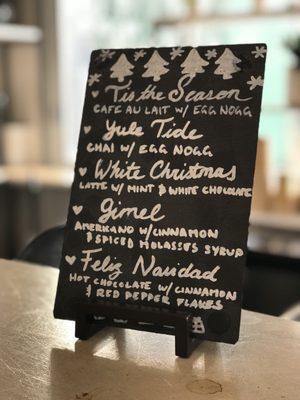 Tis the Season
CAFE AU LAIT W/ EGG NOGG
Yule Tide
CHAI W/ EGG NOGG
White Christmas
LATTE W/ MINT & WHITE CHOCOLATE
Gimel
AMERICANO W/ CINNAMON
& SPICED MOLASSES SYRUP
Feliz Navidad
HOT CHOCOLATE W/ CINNAMON
& RED PEPPER FLAKES